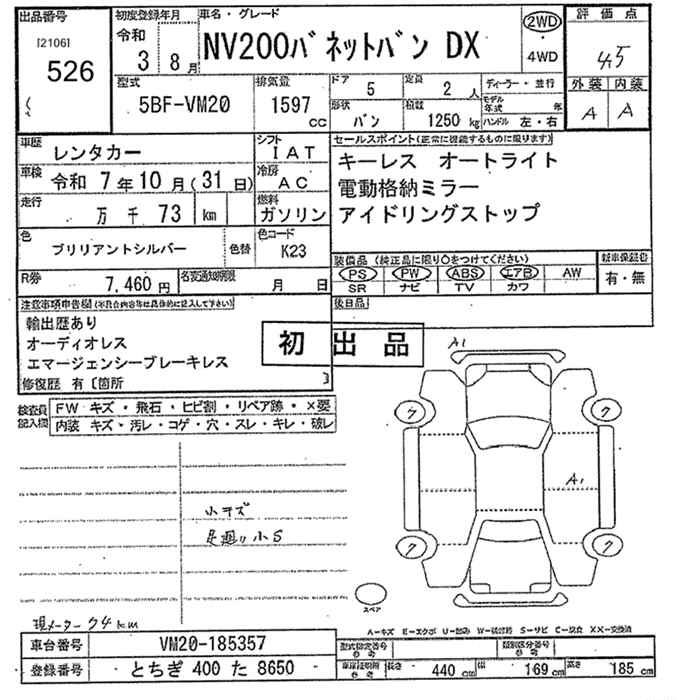 出品番号
[2106]
526
初度登録年月
令和
3 8月
車名・グレード
NV200バネットバン DX
2WD
・
4WD
評価点
4.5
外装 内装
A A
型式
5BF-VM20
排気量
1597
cc
ドア
5
定員
2人
形状
バン
積載
1250 kg
ディーラー・並行
モデル年式 年
ハンドル 左・右
車歴
レンタカー
シフト
IAT
車検
令和 7年10月(31日)
冷房
AC
走行
万 千 73 km
燃料
ガソリン
色
ブリリアントシルバー
色替
色コード
K23
R券
7,460円
名変通知期限
月 日
セールスポイント(正常に機能するものに限ります)
キーレス オートライト
電動格納ミラー
アイドリングストップ
装備品(純正品に限り○をつけてください)
PS PW ABS エアB AW
SR ナビ TV カワ
新車保証書
有・無
後日品
注意事項申告欄(不具合内容等は具体的に記入して下さい)
輸出歴あり
オーディオレス
エマージェンシーブレーキレス
修復歴 有〔箇所 〕
初出品
検査員記入欄
FW キズ・飛石・ヒビ割・リペア跡・×要
内装 キズ・汚レ・コゲ・穴・スレ・キレ・破レ
小キズ
足廻り小S
A1
ク
ク
A1
ク
ク
スペア
現メーター 74km
A-キズ E-エクボ U-凹み W-波付跡 S-サビ C-腐食 XX-交換済
車台番号
VM20-185357
登録番号
とちぎ 400 た 8650
型式指定番号
参考
類別区分番号
参考
車庫証明用
参考
長さ
440 cm
幅
169 cm
高さ
185 cm